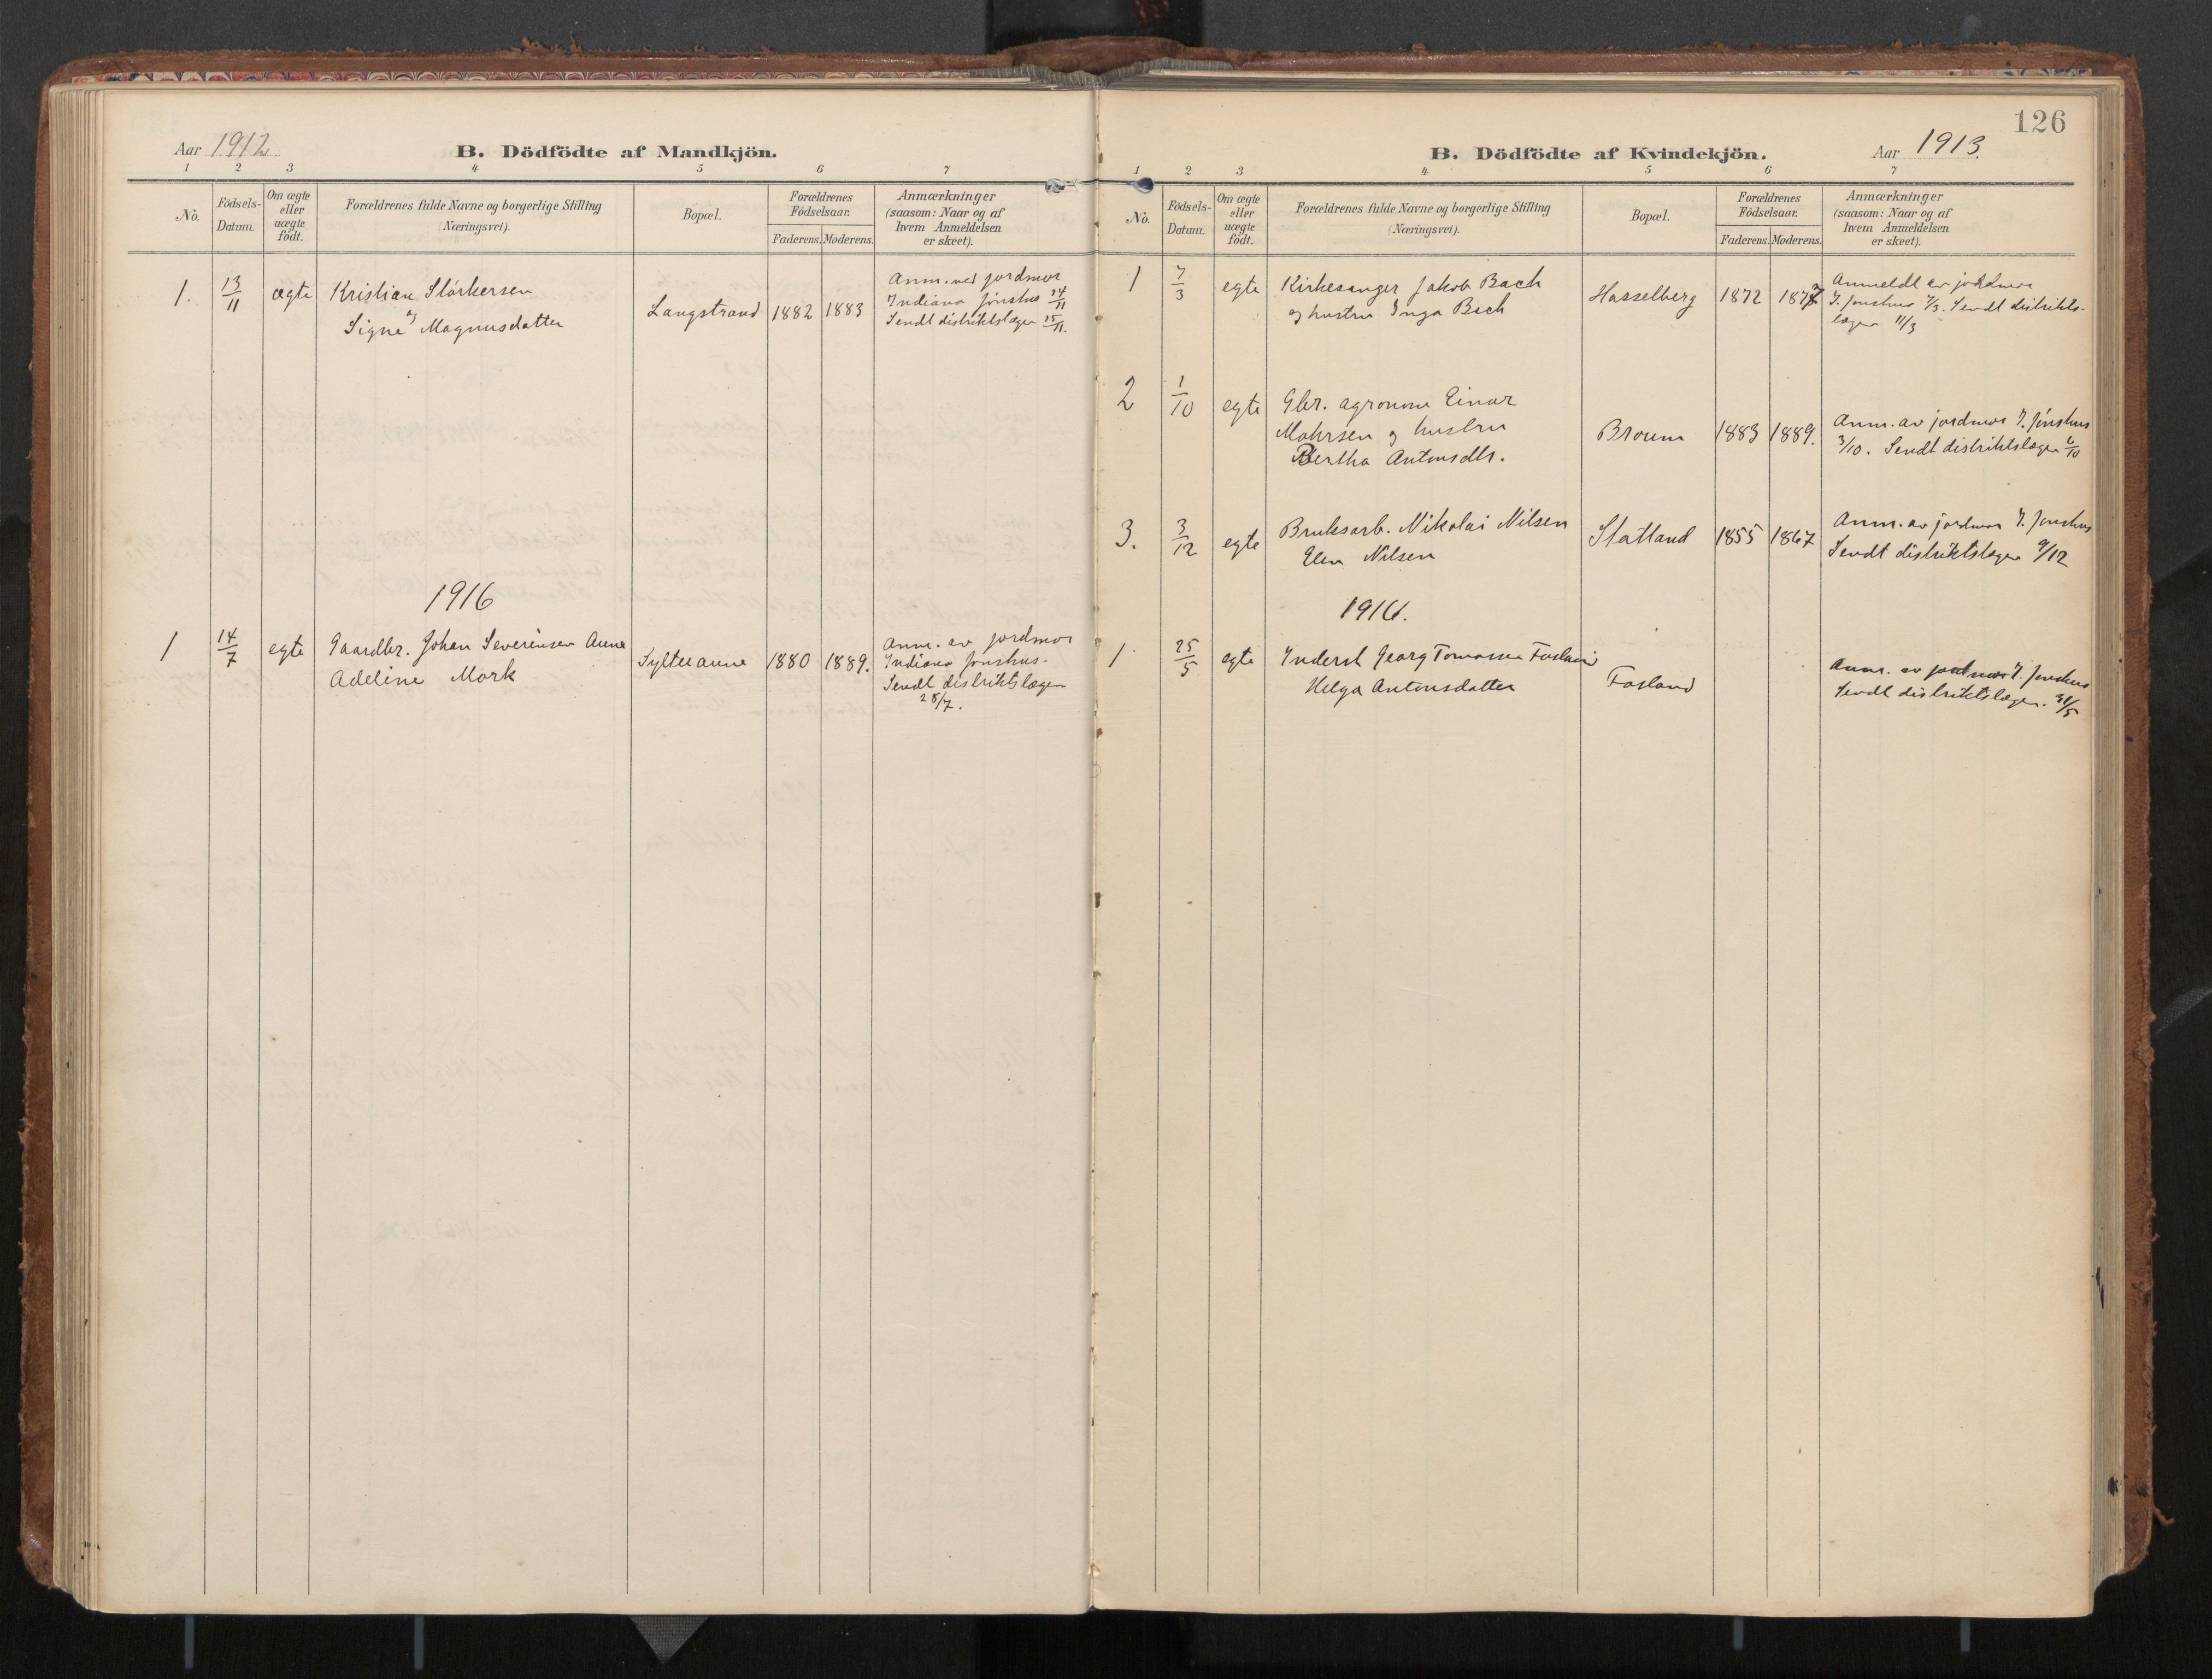 Aar 1912
B. Dödfödte af Mandkjön.
1 2 3 4 5 6 7
No.
Födsels-
Datum.
Om ægte
eller
uægte
födt.
Forældrenes fulde Navne og borgerlige Stilling
(Næringsvei).
Bopæl.
Forældrenes
Födselsaar.
Faderens. Moderens.
Anmærkninger
(saasom: Naar og af
hvem Anmeldelsen
er skeet).
1. 13/11 ægte Kristian Störkersen
og
Signe Magnusdatter
Langstrand 1882 1883
Anm. ved jordmor
Indiana Jönshus 14/11
Sendt distriktslægen 15/11.
1916
1 14/7 egte Gaardbr. Johan Severinsen Anna
Adeline Mork
1880 1889.
Anm. av jordmor
Indiana Jönshus.
Sendt distriktslægen
28/7.
126
B. Dödfödte af Kvindekjön.
Aar 1913.
1 2 3 4 5 6 7
No.
Födsels-
Datum.
Om ægte
eller
uægte
födt.
Forældrenes fulde Navne og borgerlige Stilling
(Næringsvei).
Bopæl.
Forældrenes
Födselsaar.
Faderens. Moderens.
Anmærkninger
(saasom: Naar og af
hvem Anmeldelsen
er skeet).
1 7/3 egte Kirkesanger Jakob Bach
og hustru Inga Bach
Hasselberg 1872
Anmeldt av jordmor
I. Jönshus 7/3. Sendt distrikts-
lægen 11/3
2 1/10 egte Gbr. agronom Einar
Mohrsen og hustru
Bertha Antonsdtr.
Broum 1883 1889.
Anm. av jordmor I. Jönshus
3/10. Sendt distriktslægen 6/10
3. 3/12 egte Bruksarb. Nikolai Nilsen
Elen Nilsen
Statland 1855 1867
Anm. av jordmor I. Jönshus
Sendt distriktslægen 9/12
1916.
1 25/5 egte Inderst Georg Tomassen Fosland
Helga Antonsdatter
Fosland
Anm. av jordmor I. Jönshus
Sendt distriktslægen. 31/5